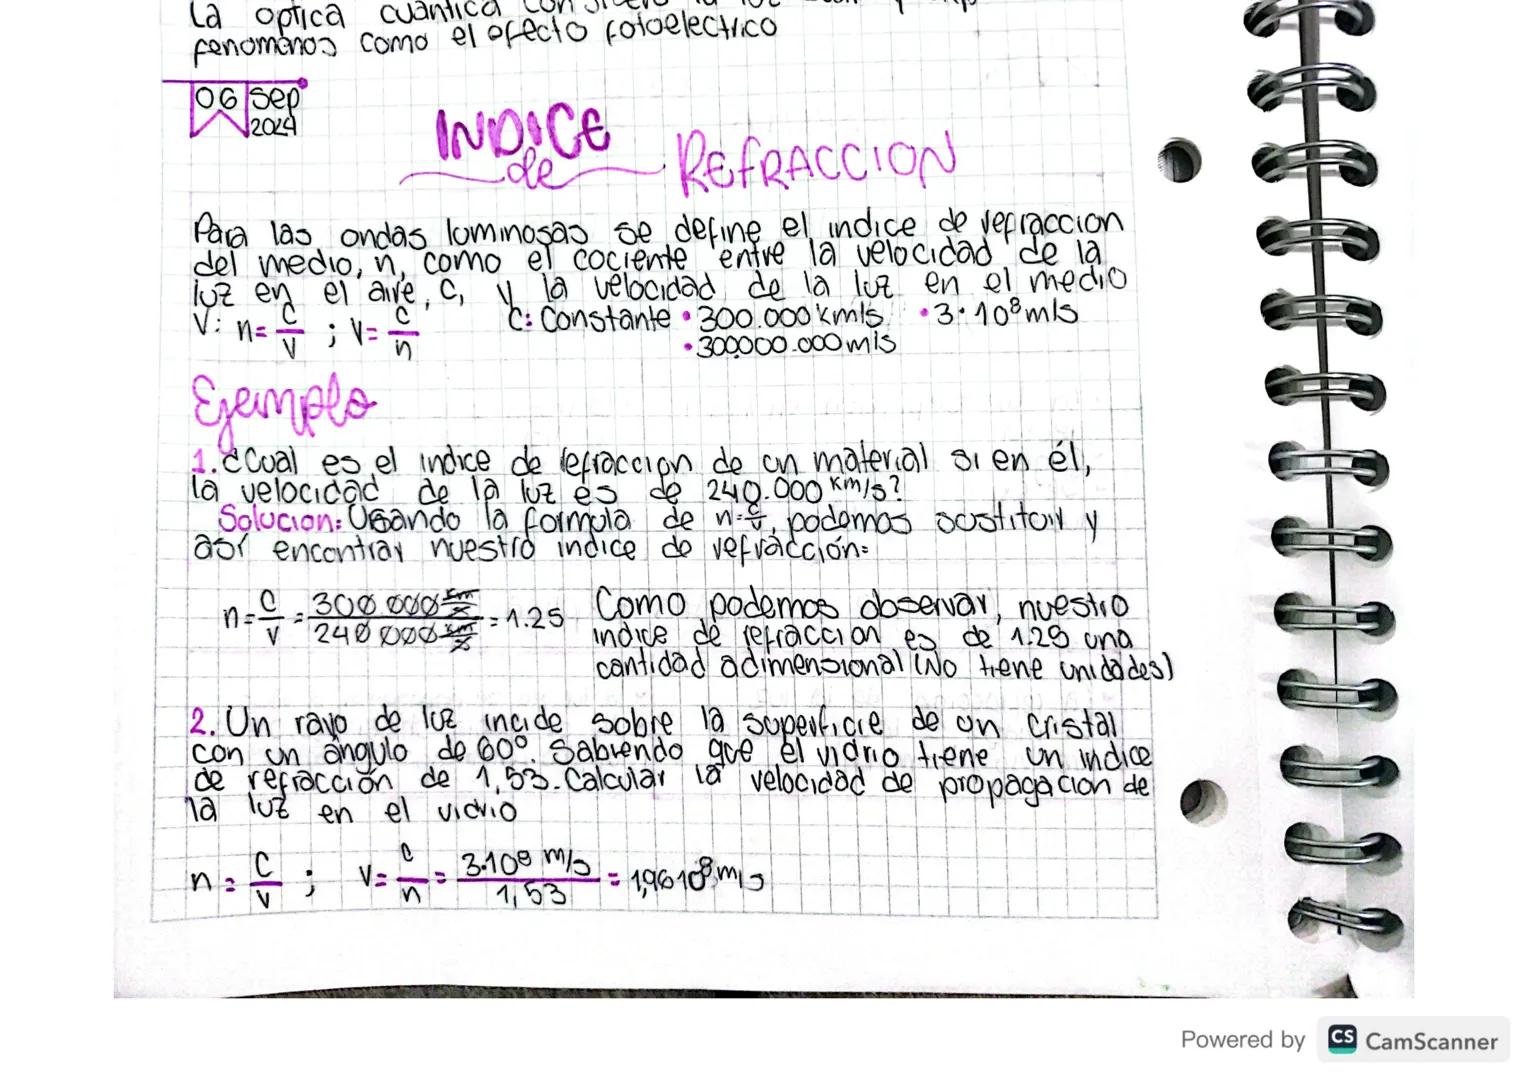 La optica cuantica
fenomenos como el efecto fotoelectrico
06 Sep
2024
INDICE
de REFRACCION
Para las ondas luminosas se define el indice de refraccion
del medio, n, como el cociente entre la velocidad de la
luz en el aire, C, y la velocidad de la luz en el medio
V: n= C/V ; V= C/n C: Constante • 300.000 km/s • 3·10⁸ m/s
• 300000.000 m/s
Ejemplo
1. ¿Cual es el indice de refraccion de un material si en él,
la velocidad de la luz es de 240.000 km/s?
Solucion: Usando la formula de n=c/v, podemos sustituir y
así encontrar nuestro indice de refracción:
n= C/V = 300.000 km/s / 240 000 km/s = 1.25 Como podemos observar, nuestro
indice de refraccion es de 1.25 una
cantidad adimensional (No tiene unidades)
2. Un rayo de luz incide sobre la superficie de un cristal
con un ángulo de 60°. Sabiendo que el vidrio tiene un indice
de refracción de 1,53. Calcular la velocidad de propagacion de
la luz en el vidrio
n = C/V ; V= C/n = 3·10⁸ m/s / 1,53 = 1,96 10⁸ m/s
Powered by CS CamScanner